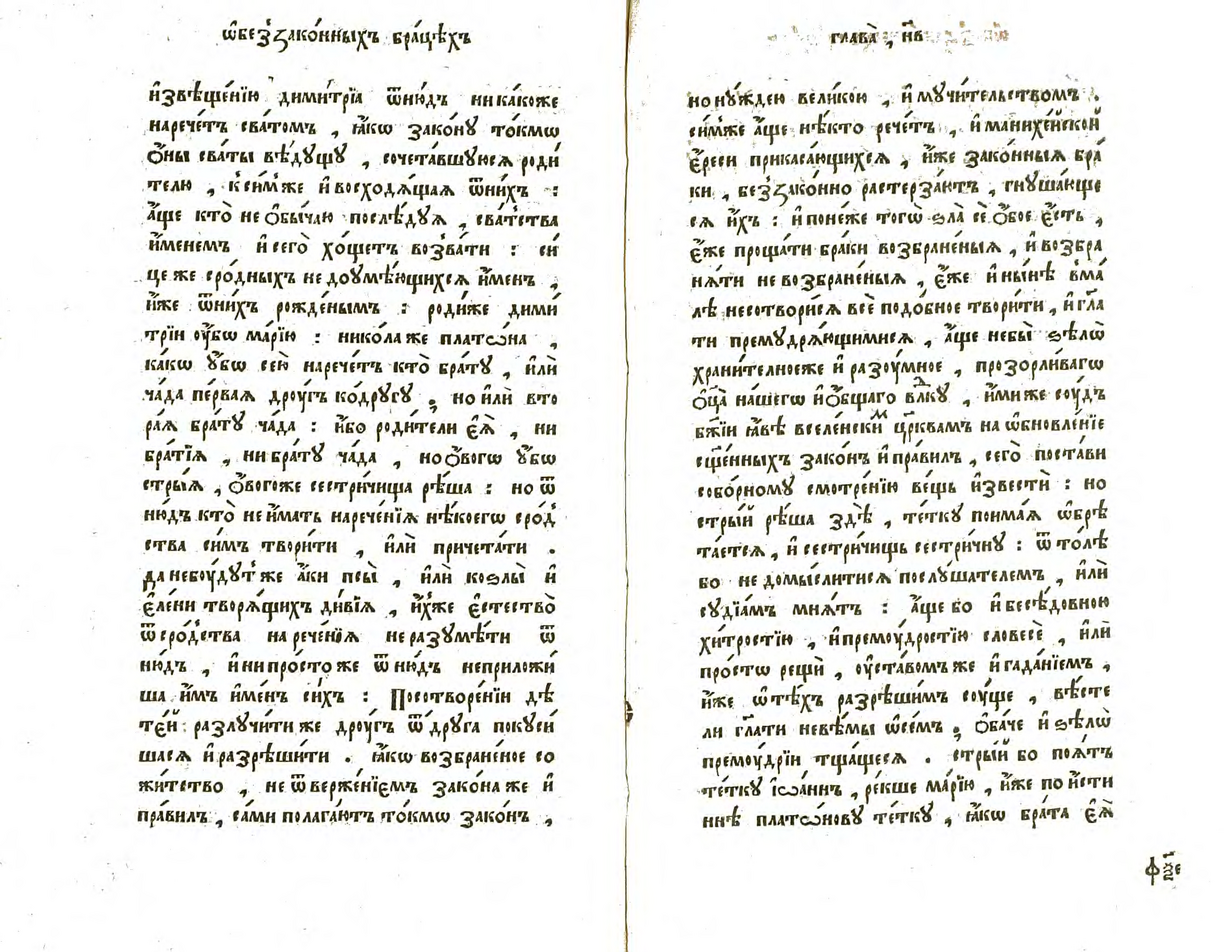 ѡ҆беззако́нныхъ бра́цѣхъ
и҆звѣще́нїю димѝтрїа ѿню́дъ ника́коже
нарече́тъ сва́томъ , ꙗ҆́кѡ зако́нꙋ то́кмѡ
ѻ҆́ны сва́ты вѣ́дꙋщꙋ , сочета́вшꙋюсѧ роди́
телю , к си́м же и҆ восходѧ́щаѧ ѿни́хъ :
а҆́ще кто̀ не ѻ҆бы́чаю послѣ́дꙋѧ , сва́тства
и҆́менемъ и҆ сего̀ хо́щетъ возва́ти : си́
це же сро́дныхъ не доꙋмѣ́ющихсѧ и҆ме́нъ ,
и҆́же ѿни́хъ рожде́нымъ : роди́же дими́
трїи ᲂу҆́бѡ ма́рїю : никола́ же плато́на ,
ка́кѡ ᲂу҆́бѡ сею̀ нарече́тъ кто̀ бра́тꙋ , и҆лѝ
ча́да пе́рваѧ дрꙋ́гъ ко́дрꙋгꙋ , но и҆лѝ вто
ра́ѧ бра́тꙋ ча́да : и҆́бо роди́тели є҆ѧ̀ , ни
бра́тїѧ , ни бра́тꙋ ча́да , но ѻ҆́вогѡ ᲂу҆́бѡ
стры́ѧ , ѻ҆́вогоже сестри́чища рѣ́ша : но ѿ
ню́дъ кто̀ не и҆́мать нарече́нїѧ нѣ́коегѡ сро́д
ства си́мъ твори́ти , и҆лѝ причета́ти .
да небꙋ́дꙋт же а҆́ки псы̀ , и҆лѝ козлы̀ и҆
є҆ле́ни творѧ́щихъ ди́вїѧ , и҆́хже є҆стество̀
ѿ сро́дства нарече́нїѧ не разꙋмѣ́ти ѿ
ню́дъ , и҆ ни про́сто же ѿню́дъ неприложи́
ша и҆̀мъ и҆ме́нъ си́хъ : Посотворе́нїи дѣ
те́й разлꙋчи́ти же дрꙋ́гъ ѿ дрꙋга покꙋси́
шасѧ и҆ разрѣши́ти . ꙗ҆́кѡ возбране́ное со
жи́тство , не ѿверже́нїемъ зако́на же и҆
пра́вилъ , са́ми полага́ютъ то́кмѡ зако́нъ ,
глава̀ , н҃в
но нꙋ́ждею вели́кою , и҆ мꙋчи́тельствомъ .
си́мже а҆́ще нѣ́кто рече́тъ , и҆ манихе́йской
є҆́реси прикаса́ющихсѧ , и҆́же зако́нныѧ бра́
ки , беззако́нно растерза́ютъ , гнꙋша́юще
сѧ и҆́хъ : и҆ поне́же тогѡ̀ ѕла̀ сѐ ѻ҆́бое є҆́сть ,
є҆́же проща́ти бра́ки возбране́ныѧ , и҆ возбра
нѧ́ти не возбране́ныѧ , є҆́же и҆ ны́нѣ вма́
лѣ несотвори́сѧ всѐ подо́бное твори́ти , и҆ гл҃а
ти премꙋдрѧ́ющимисѧ , а҆́ще небы̀ ѕѣлѡ̀
храни́телноеже и҆ разꙋ́мное , прозорли́вагѡ
ѻ҆ц҃а̀ на́шегѡ и҆ ѻ҆́бщаго влⷣкꙋ , и҆́миже сꙋ́дъ
бж҃їи ꙗ҆́вѣ вселе́нскиⷨ цр҃квамъ на ѡ҆бновле́нїе
сщ҃е́нныхъ зако́нъ и҆ пра́вилъ , сего̀ поста́ви
собо́рномꙋ смотре́нїю ве́щь и҆звестѝ : но
стры́й рѣ́ша здѣ̀ , те́ткꙋ поима́ѧ ѡ҆брѣ
та́етсѧ , и҆ сестри́чищь сестри́чнꙋ : ѿто́лѣ
бо не домы́слитисѧ послꙋ́шателемъ , и҆лѝ
сꙋдїа́мъ мнѧ́тъ : а҆́ще бо и҆ бесѣ́довною
хи́тростїю , и҆ премꙋ́дростїю словесѐ , и҆лѝ
про́стѡ рещѝ , ᲂу҆ста́вомъ же и҆ гада́нїемъ ,
и҆́же ѡ҆ тѣ́хъ разрѣши́мъ сꙋ́ще , вѣ́сте
ли гл҃ати невѣ́мы ѡ҆се́мъ , ѻ҆ба́че и҆ ѕѣлѡ̀
премꙋ́дрїи тща́щесѧ . стры́й бо поѧ́тъ
те́ткꙋ і҆ѡа́ннъ , ре́кше ма́рїю , и҆́же по и҆́сти
ннѣ плато́новꙋ те́ткꙋ , ꙗ҆́кѡ бра́та є҆ѧ̀